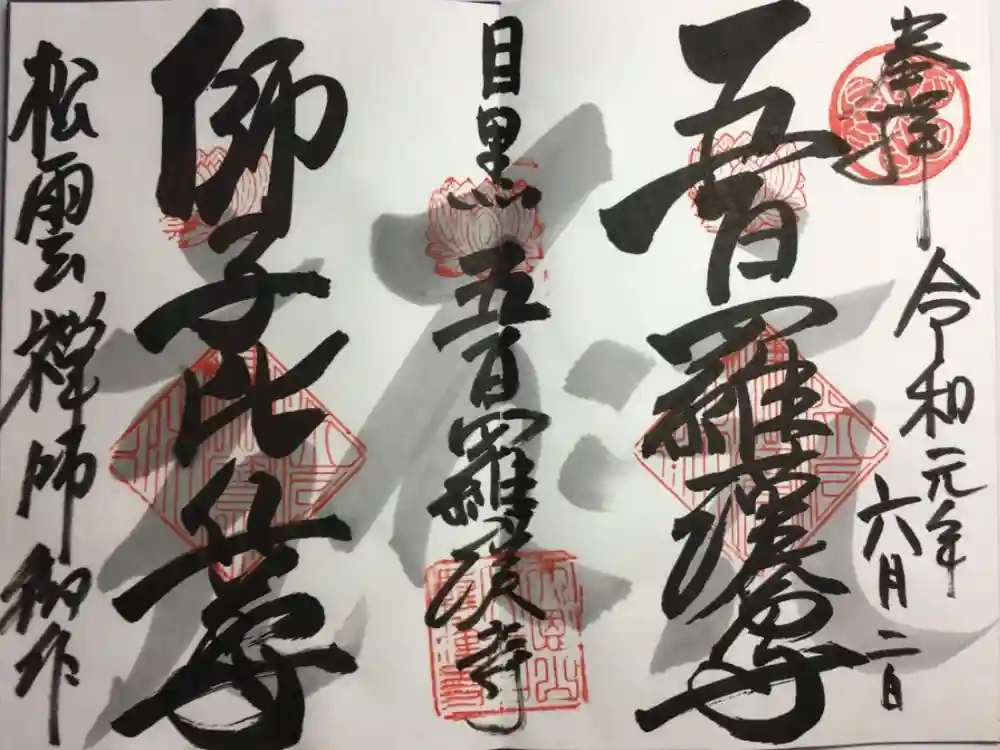 奉拝
令和元年
六月二日
五百羅漢尊
目黒五百羅漢寺
師子比丘尊
松雲禅師御作